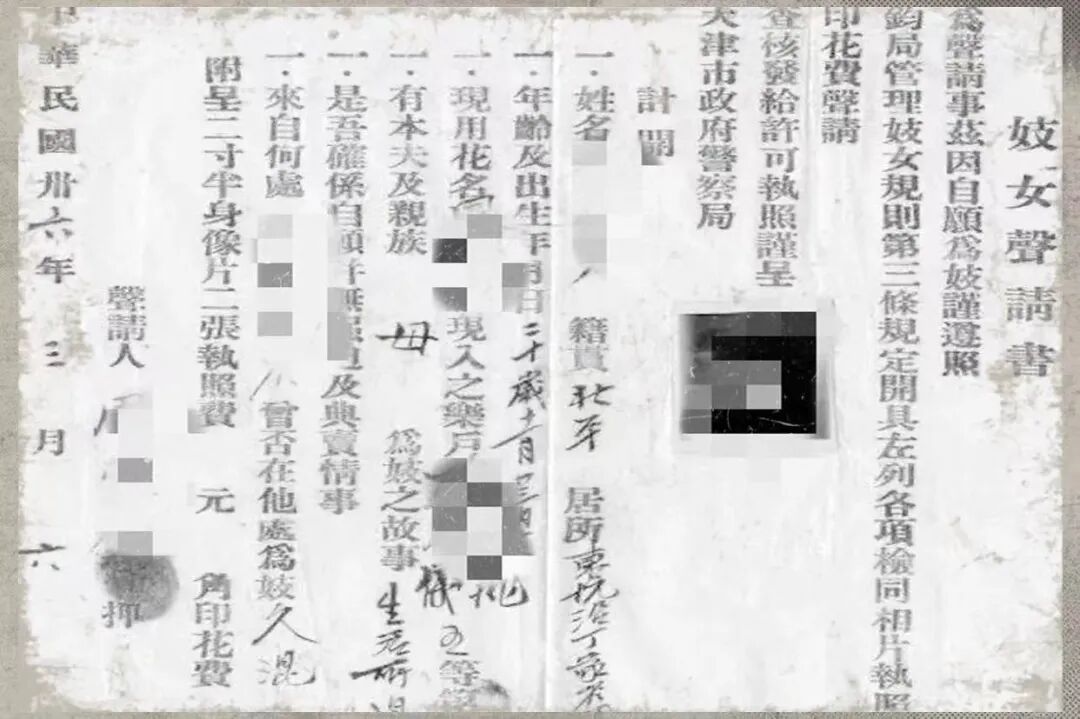 妓女聲請書
為聲請事茲因自願為妓謹遵照
鈞局管理妓女規則第三條規定開具左列各項檢同相片執照
印花費聲請
查核發給許可執照謹呈
天津市政府警察局
計開
一·姓名 籍貫 北平 居所
一·年齡及出生年月日 二十歲十一月
一·現用花名 現入之樂戶 等
一·有本夫及親族 母 為妓之故事 生活所
一·是否確係自願 及典賣情事
一·來自何處 曾否在他處為妓 久混
附呈二寸半身像片二張執照費 元 角印花費
聲請人 押
中華民國卅六年 三 月 六